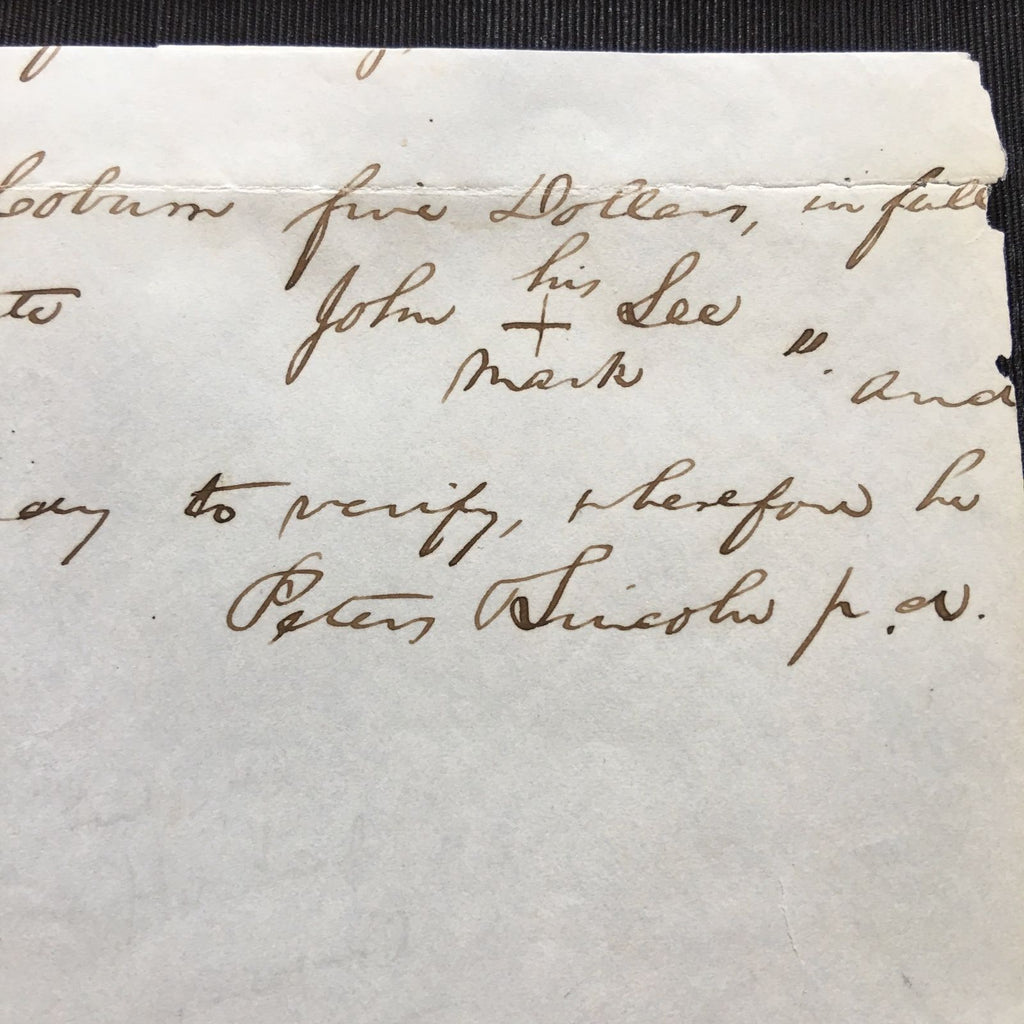 Coburn five Dollars, in full
his
John + Lee
mark
". and
to verify, wherefore he
Peters & Lincoln p. d.